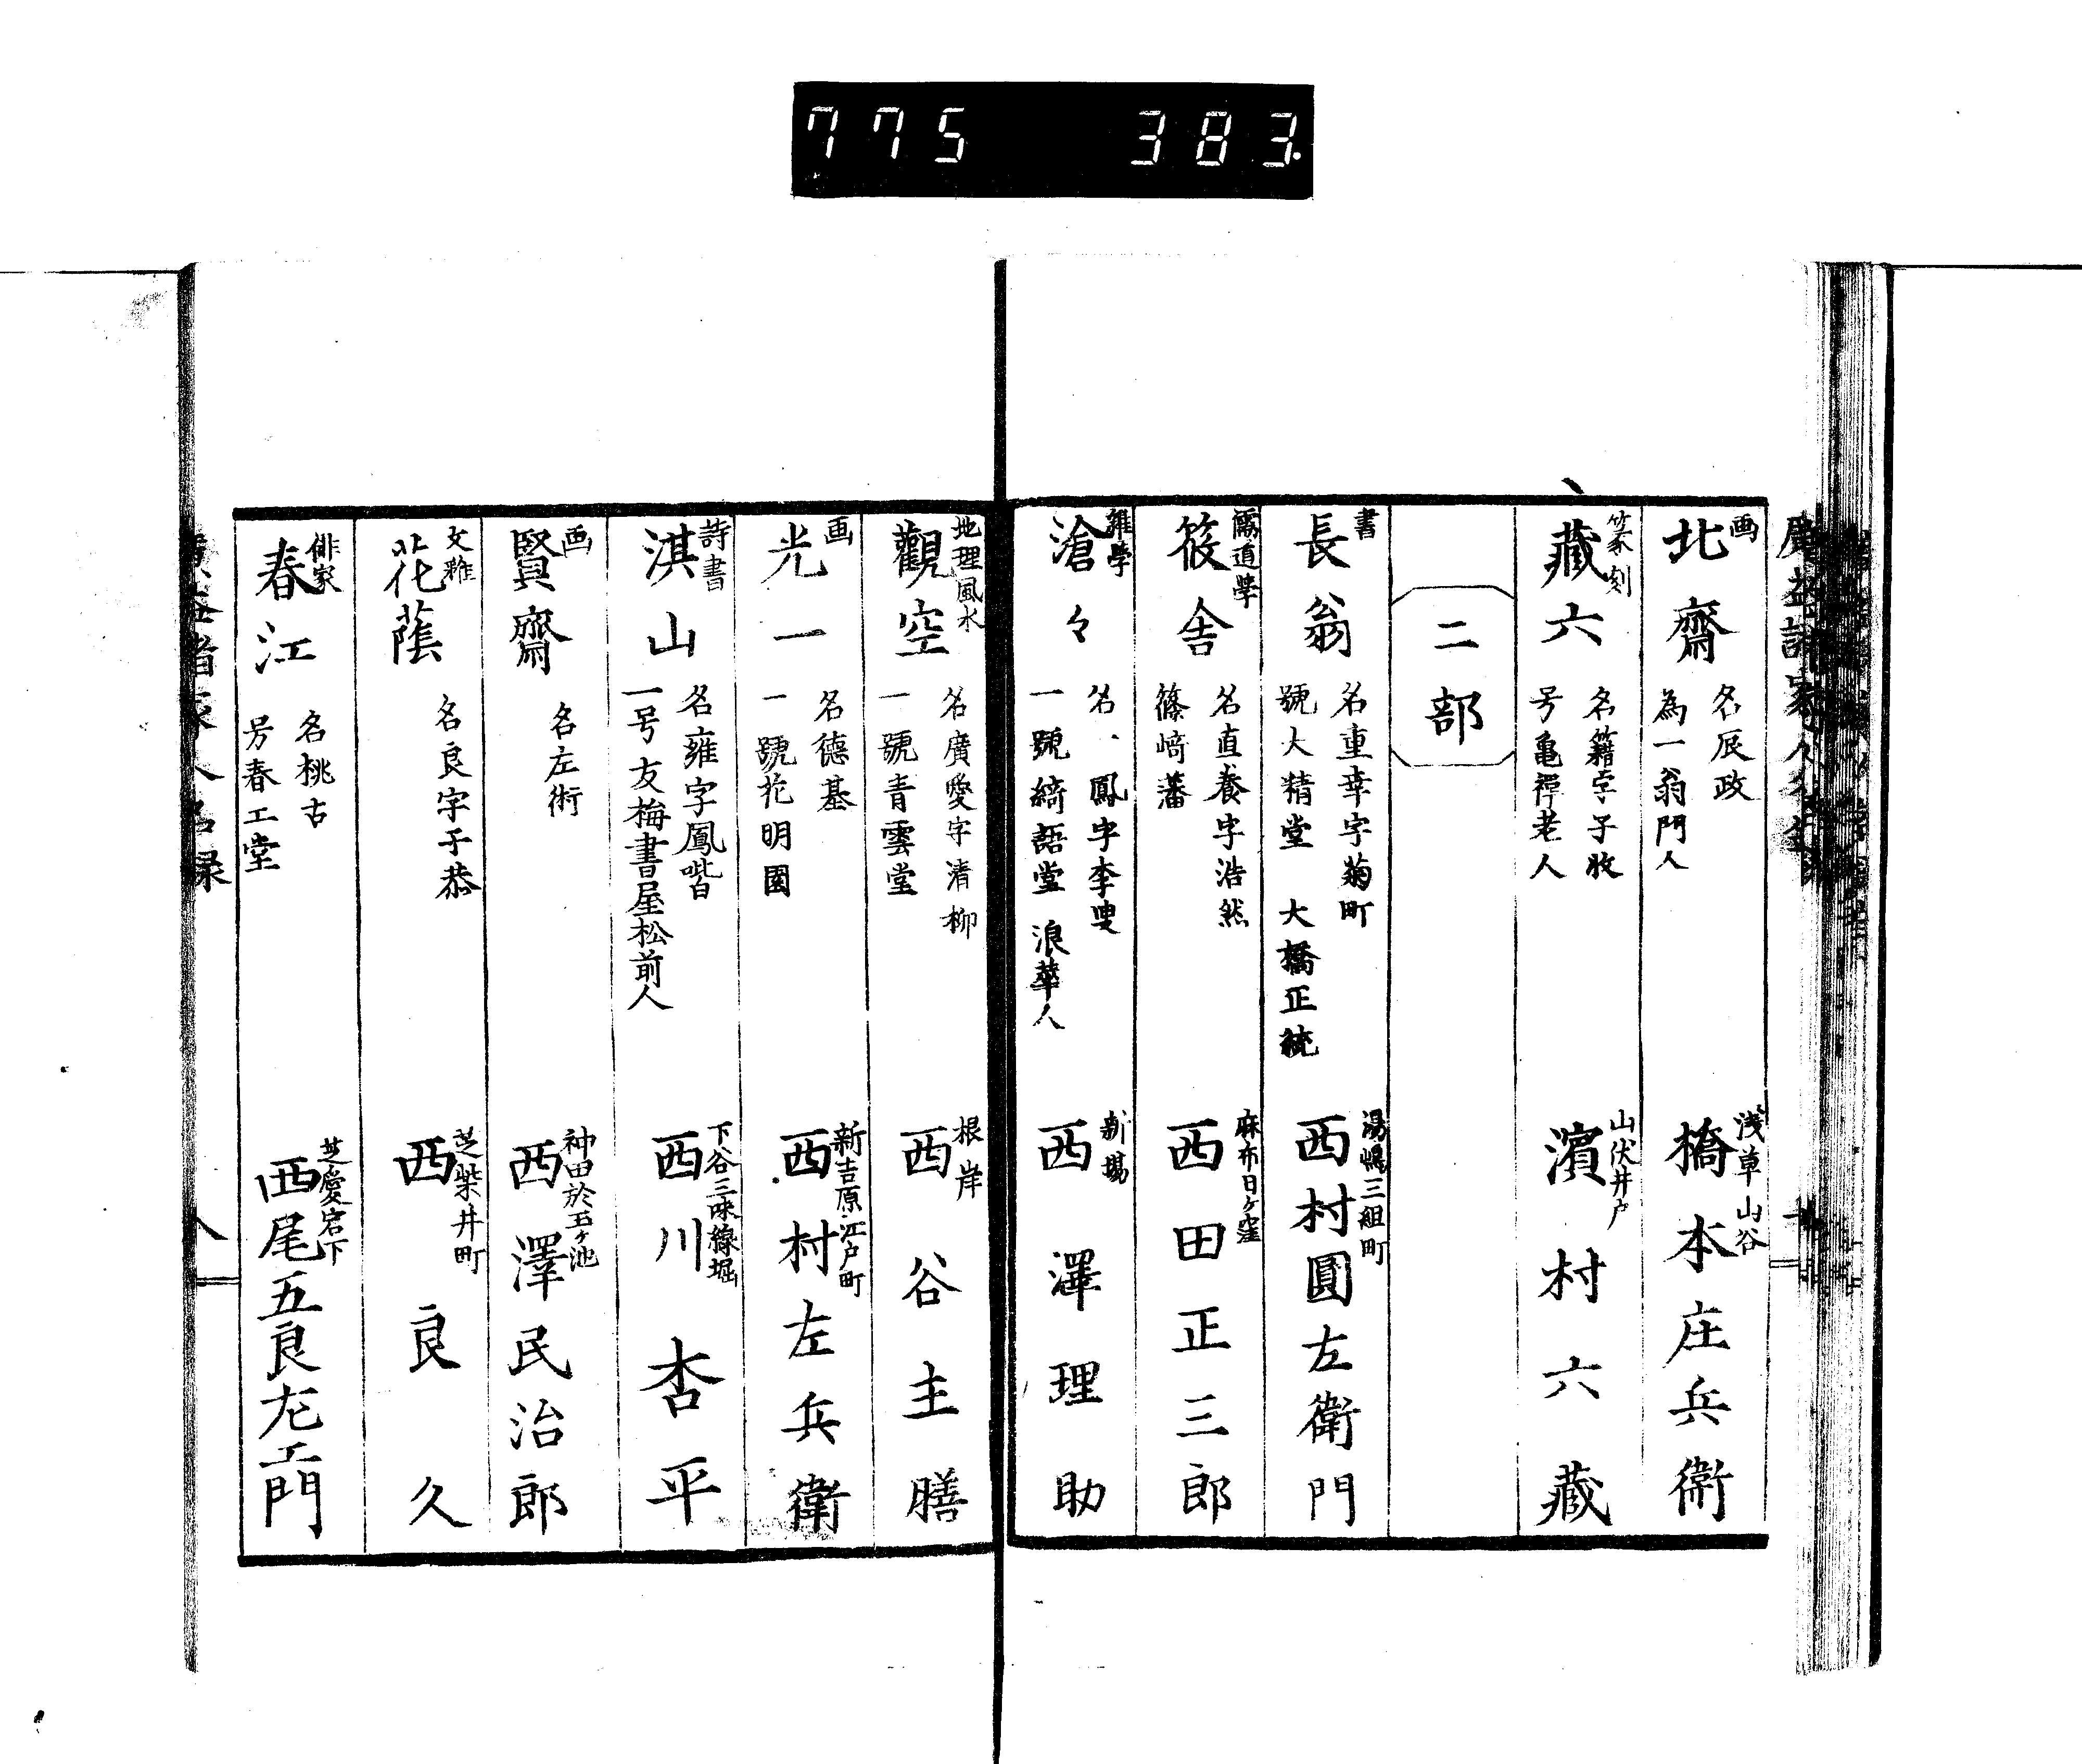 775 383
画
北齋
名辰政
為一翁門人
浅草山谷
橋本庄兵衛
篆刻
藏六
名籍字子收
号亀禅老人
山伏井戸
濱村六藏
二部
書
長翁
名重幸字菊町
號大精堂 大橋正統
湯嶋三組町
西村圓左衛門
儒道學
筱舎
名直養字浩然
篠﨑藩
麻布日ケ窪
西田正三郎
雜學
滄々
名鳳字李叟
一號綺語堂 浪華人
新場
西澤理助
地理風水
觀空
名廣愛字清柳
一號青雲堂
根岸
西谷主膳
画
光一
名德基
一號花明園
新吉原江戸町
西村左兵衛
詩書
淇山
名雍字鳳喈
一号友梅書屋松前人
下谷三味線堀
西川杏平
画
賢齋
名左術
神田於玉ケ池
西澤民治郎
文雅
花蔭
名良字子恭
芝柴井町
西良久
俳家
春江
名桃古
号春工堂
芝愛宕下
西尾五良左エ門